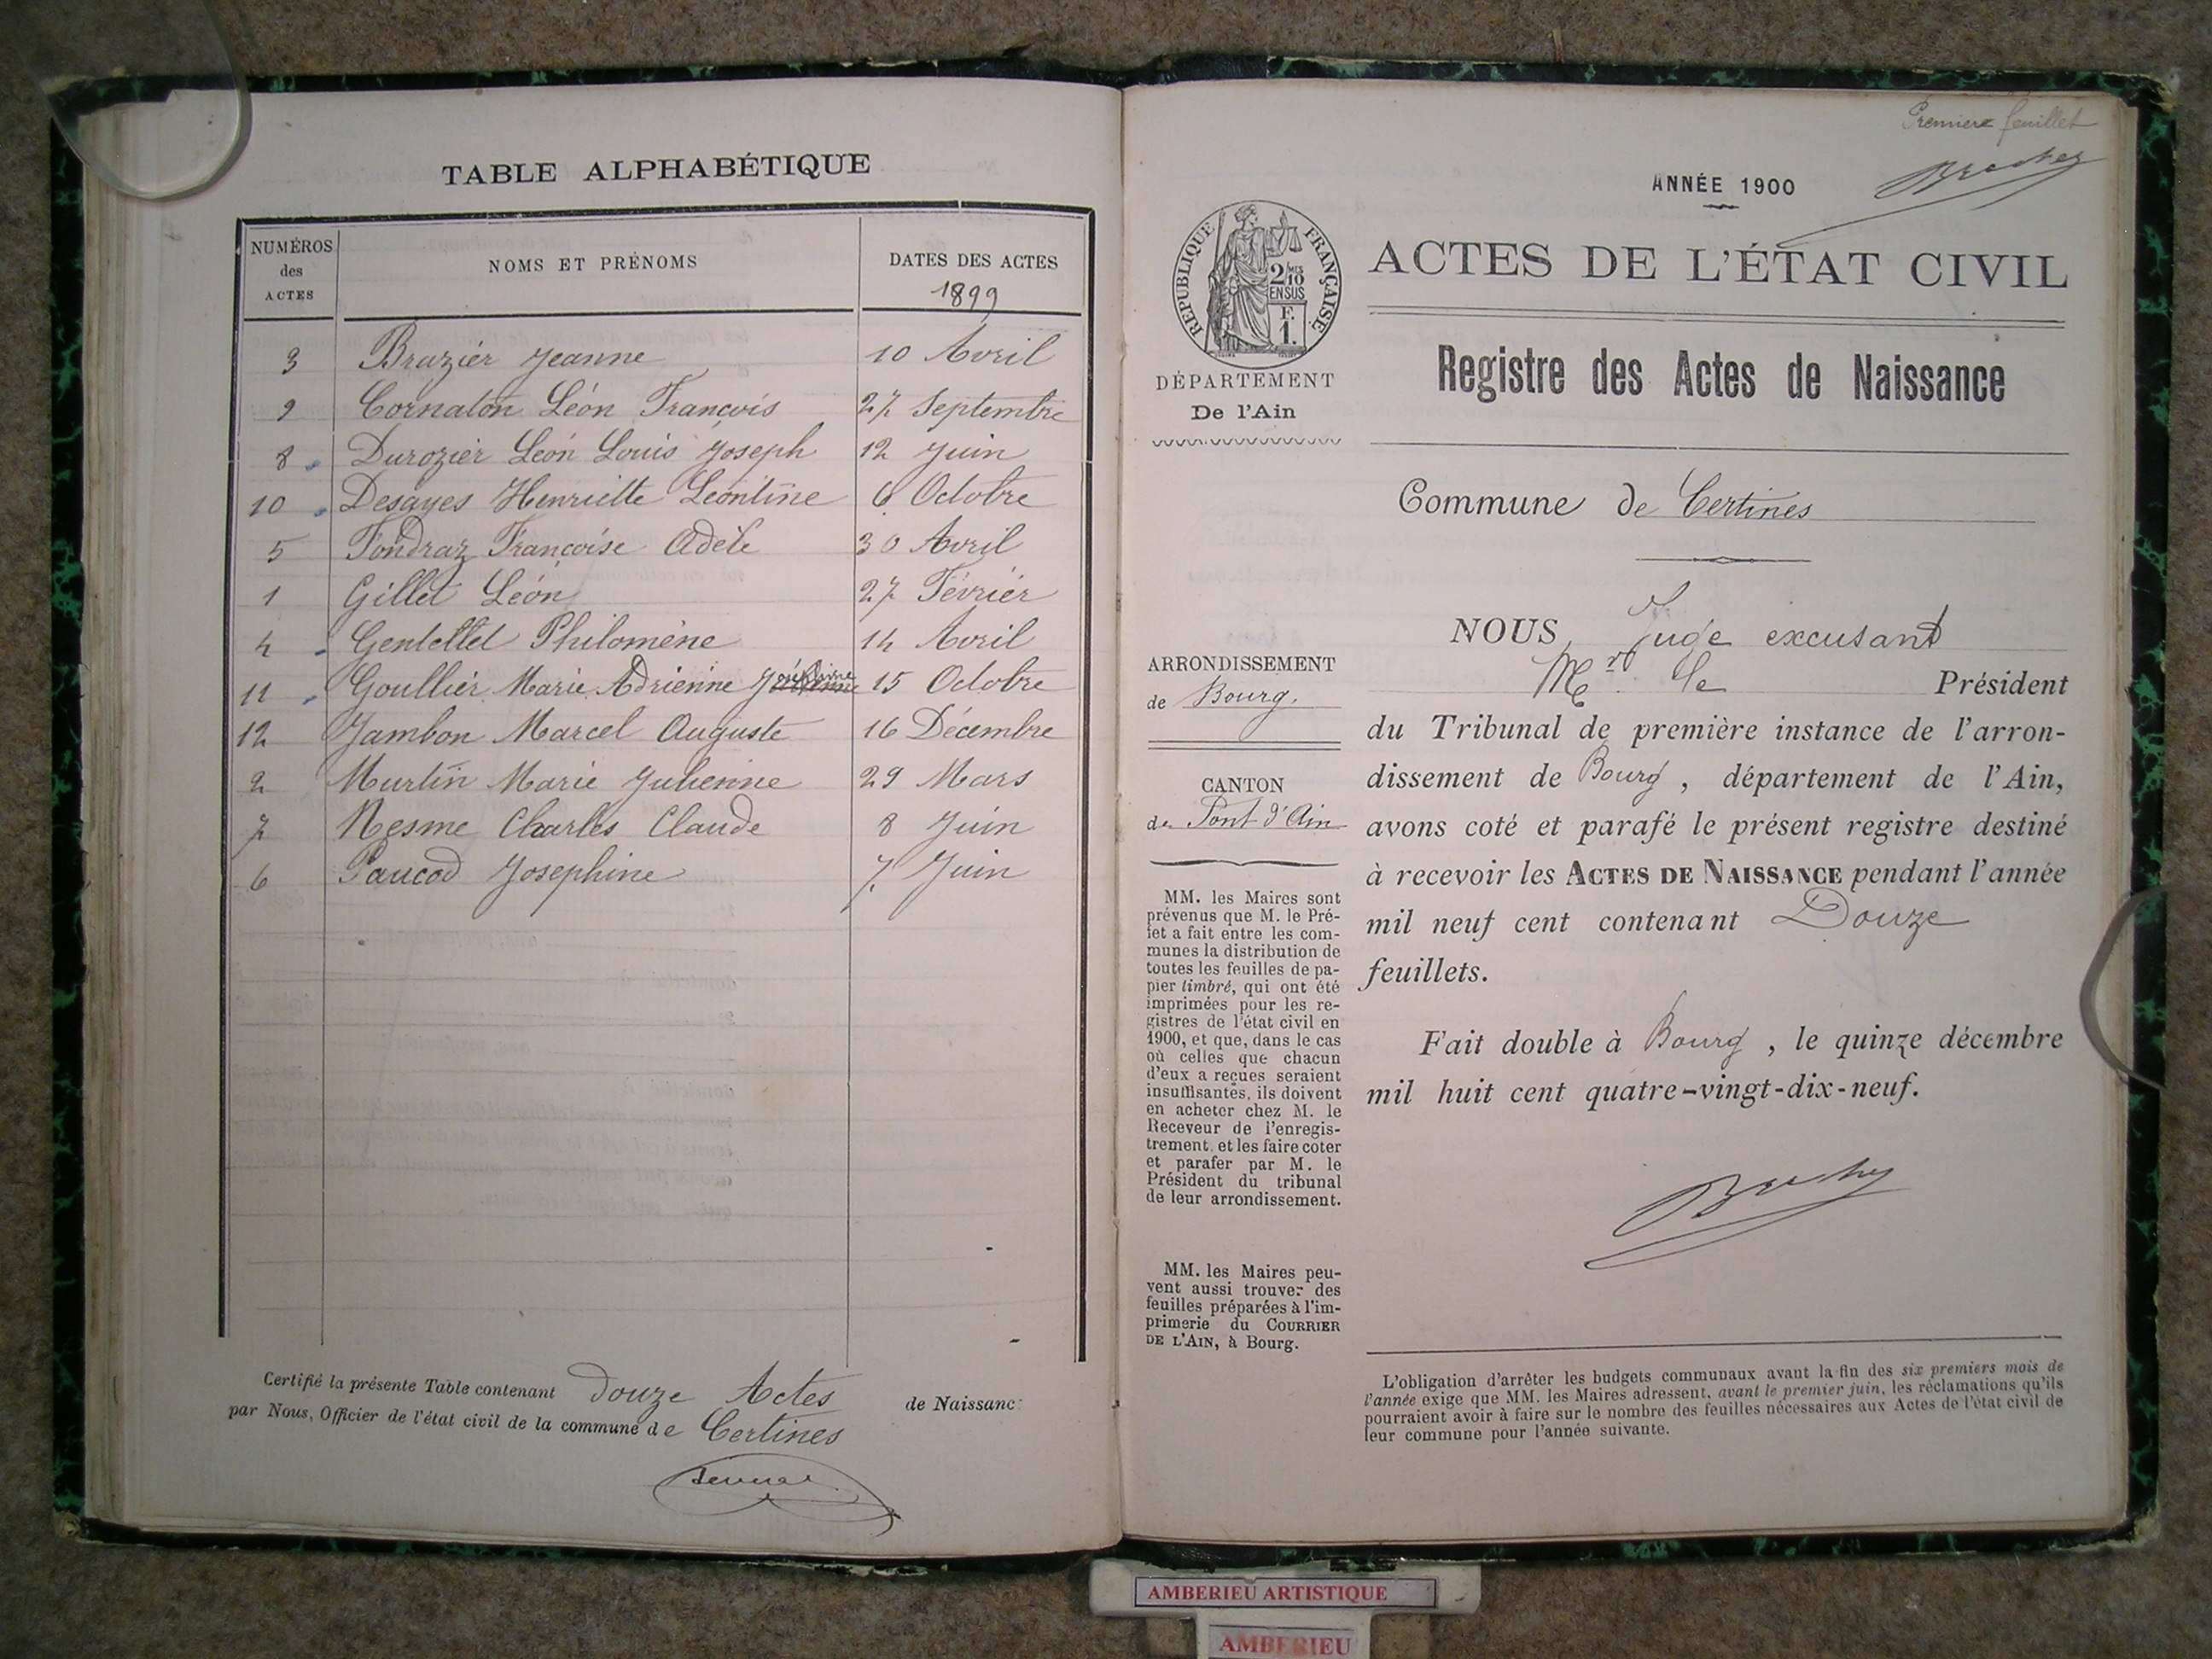 TABLE ALPHABÉTIQUE
NUMÉROS des ACTES
NOMS ET PRÉNOMS
DATES DES ACTES
1899
3 Brazier Jeanne 10 Avril
9 Cornaton Léon François 27 Septembre
8 Durozier Léon Louis Joseph 12 Juin
10 Desayes Henriette Léontine 6 Octobre
5 Fondraz Françoise Adèle 30 Avril
1 Gillet Léon 27 Février
4 Gentellet Philomène 14 Avril
11 Goullier Marie Adrienne Joséphine 15 Octobre
12 Jambon Marcel Auguste 16 Décembre
2 Murtin Marie Julienne 29 Mars
7 Nesme Charles Claude 8 Juin
6 Paucod Josephine 7 Juin
Certifié la présente Table contenant Douze Actes de Naissanc
par Nous, Officier de l'état civil de la commune de Certines
Premier feuillet
ANNÉE 1900
RÉPUBLIQUE FRANÇAISE
2/10 EN SUS
F. 1.
ACTES DE L'ÉTAT CIVIL
Registre des Actes de Naissance
DÉPARTEMENT
De l'Ain
Commune de Certines
ARRONDISSEMENT
de Bourg.
CANTON
de Pont d'Ain
MM. les Maires sont
prévenus que M. le Pré-
fet a fait entre les com-
munes la distribution de
toutes les feuilles de pa-
pier timbré, qui ont été
imprimées pour les re-
gistres de l'état civil en
1900, et que, dans le cas
où celles que chacun
d'eux a reçues seraient
insuffisantes, ils doivent
en acheter chez M. le
Receveur de l'enregis-
trement, et les faire coter
et parafer par M. le
Président du tribunal
de leur arrondissement.
MM. les Maires peu-
vent aussi trouver des
feuilles préparées à l'im-
primerie du COURRIER
DE L'AIN, à Bourg.
NOUS, Juge excusant
Mr. le Président
du Tribunal de première instance de l'arron-
dissement de Bourg, département de l'Ain,
avons coté et parafé le présent registre destiné
à recevoir les ACTES DE NAISSANCE pendant l'année
mil neuf cent contenant Douze
feuillets.
Fait double à Bourg, le quinze décembre
mil huit cent quatre-vingt-dix-neuf.
L'obligation d'arrêter les budgets communaux avant la fin des six premiers mois de
l'année exige que MM. les Maires adressent, avant le premier juin, les réclamations qu'ils
pourraient avoir à faire sur le nombre des feuilles nécessaires aux Actes de l'état civil de
leur commune pour l'année suivante.
AMBERIEU ARTISTIQUE
AMBERIEU